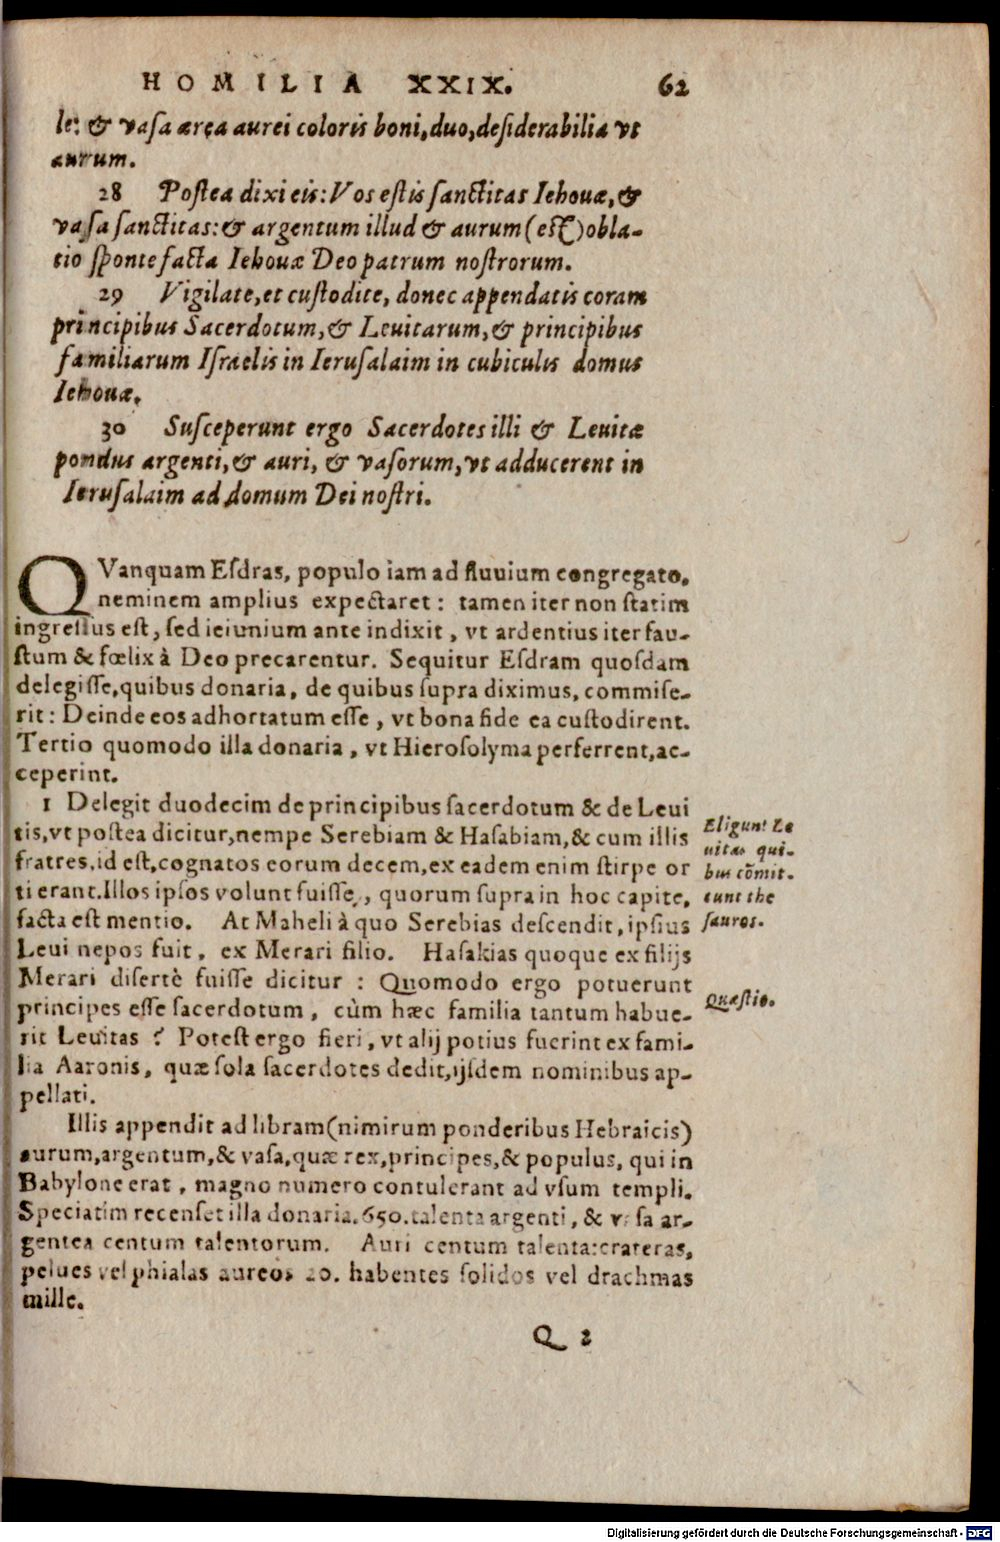 HOMILIA XXIX. 62
le: & vasa ærea aurei coloris boni, duo, desiderabilia vt
aurum.
28 Postea dixi eis: Vos estis sanctitas Iehouæ, &
vasa sanctitas: & argentum illud & aurum (est) obla-
tio sponte facta Iehouæ Deo patrum nostrorum.
29 Vigilate, et custodite, donec appendatis coram
principibus Sacerdotum, & Leuitarum, & principibus
familiarum Israelis in Ierusalaim in cubiculis domus
Iehouæ.
30 Susceperunt ergo Sacerdotes illi & Leuitæ
pondus argenti, & auri, & vasorum, vt adducerent in
Ierusalaim ad domum Dei nostri.
QVanquam Esdras, populo iam ad fluuium congregato,
neminem amplius expectaret: tamen iter non statim
ingressus est, sed ieiunium ante indixit, vt ardentius iter fau-
stum & fœlix à Deo precarentur. Sequitur Esdram quosdam
delegisse, quibus donaria, de quibus supra diximus, commise-
rit: Deinde eos adhortatum esse, vt bona fide ea custodirent.
Tertio quomodo illa donaria, vt Hierosolyma perferrent, ac-
ceperint.
1 Delegit duodecim de principibus sacerdotum & de Leui
tis, vt postea dicitur, nempe Serebiam & Hasabiam, & cum illis
fratres, id est, cognatos eorum decem, ex eadem enim stirpe or
ti erant. Illos ipsos volunt fuisse, quorum supra in hoc capite,
facta est mentio. At Maheli à quo Serebias descendit, ipsius
Leui nepos fuit, ex Merari filio. Hasakias quoque ex filijs
Merari disertè fuisse dicitur: Quomodo ergo potuerunt
principes esse sacerdotum, cùm hæc familia tantum habue-
rit Leuitas? Potest ergo fieri, vt alij potius fuerint ex fami-
lia Aaronis, quæ sola sacerdotes dedit, ijsdem nominibus ap-
pellati.
Illis appendit ad libram (nimirum ponderibus Hebraicis)
aurum, argentum, & vasa, quæ rex, principes, & populus, qui in
Babylone erat, magno numero contulerant ad vsum templi.
Speciatim recenset illa donaria. 650. talenta argenti, & vasa ar-
gentea centum talentorum. Auri centum talenta: crateras,
pelues vel phialas aureos 20. habentes solidos vel drachmas
mille.
Q 2
Eligunt Le
uitas qui-
bus cõmit-
tunt the
sauros.
Quæstio.
Digitalisierung gefördert durch die Deutsche Forschungsgemeinschaft - DFG